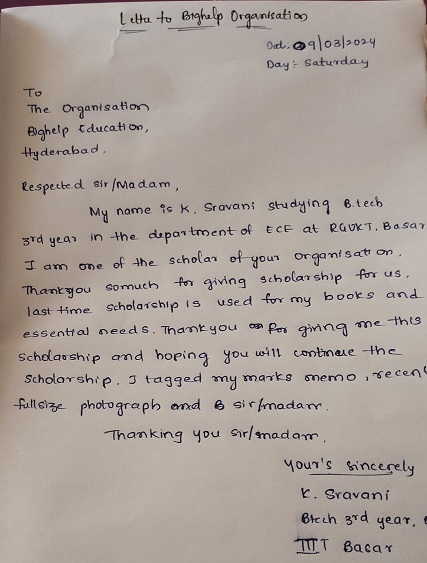 Letter to Bighelp Organisation
Dat:- 09/03/2024
Day:- Saturday
To
The Organisation
Bighelp Education,
Hyderabad.
Respected sir/Madam,
My name is K. Sravani studying B.tech
3rd year in the department of ECE at RGUKT, Basar
I am one of the scholar of your organisation.
Thankyou somuch for giving scholarship for us.
last time scholarship is used for my books and
essential needs. Thankyou for giving me this
scholarship and hoping you will continue the
scholarship. I tagged my marks memo, recent
fullsize photograph and sir/madam.
Thanking you sir/madam.
Your's sincerely
K. Sravani
Btech 3rd year,
IIIT Basar